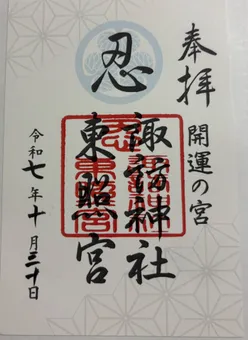 奉拝
開運の宮
忍
諏訪神社
東照宮
令和七年十月三十日